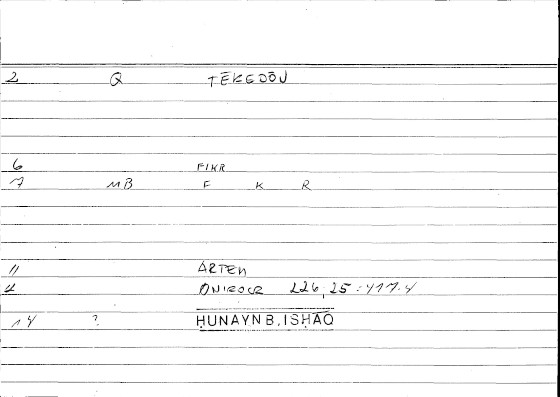 2 Q TĒKEDŌN
6 FIKR
7 MB F K R
11 ARTEM
4 ONIROCR 226,25:417.4
14 ? ḤUNAYN B. ISḤĀQ